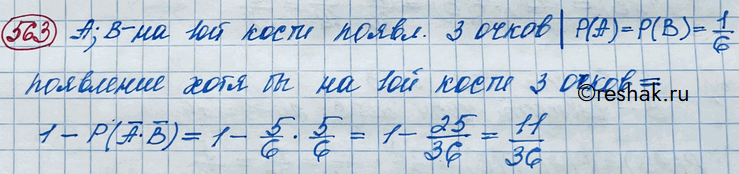 563 A; B-на 1ой кости появл. 3 очков | P(A)=P(B)=1/6
появление хотя бы на 1ой кости 3 очков =
©reshak.ru
1-P(Ā·B̄)=1-5/6·5/6=1-25/36=11/36